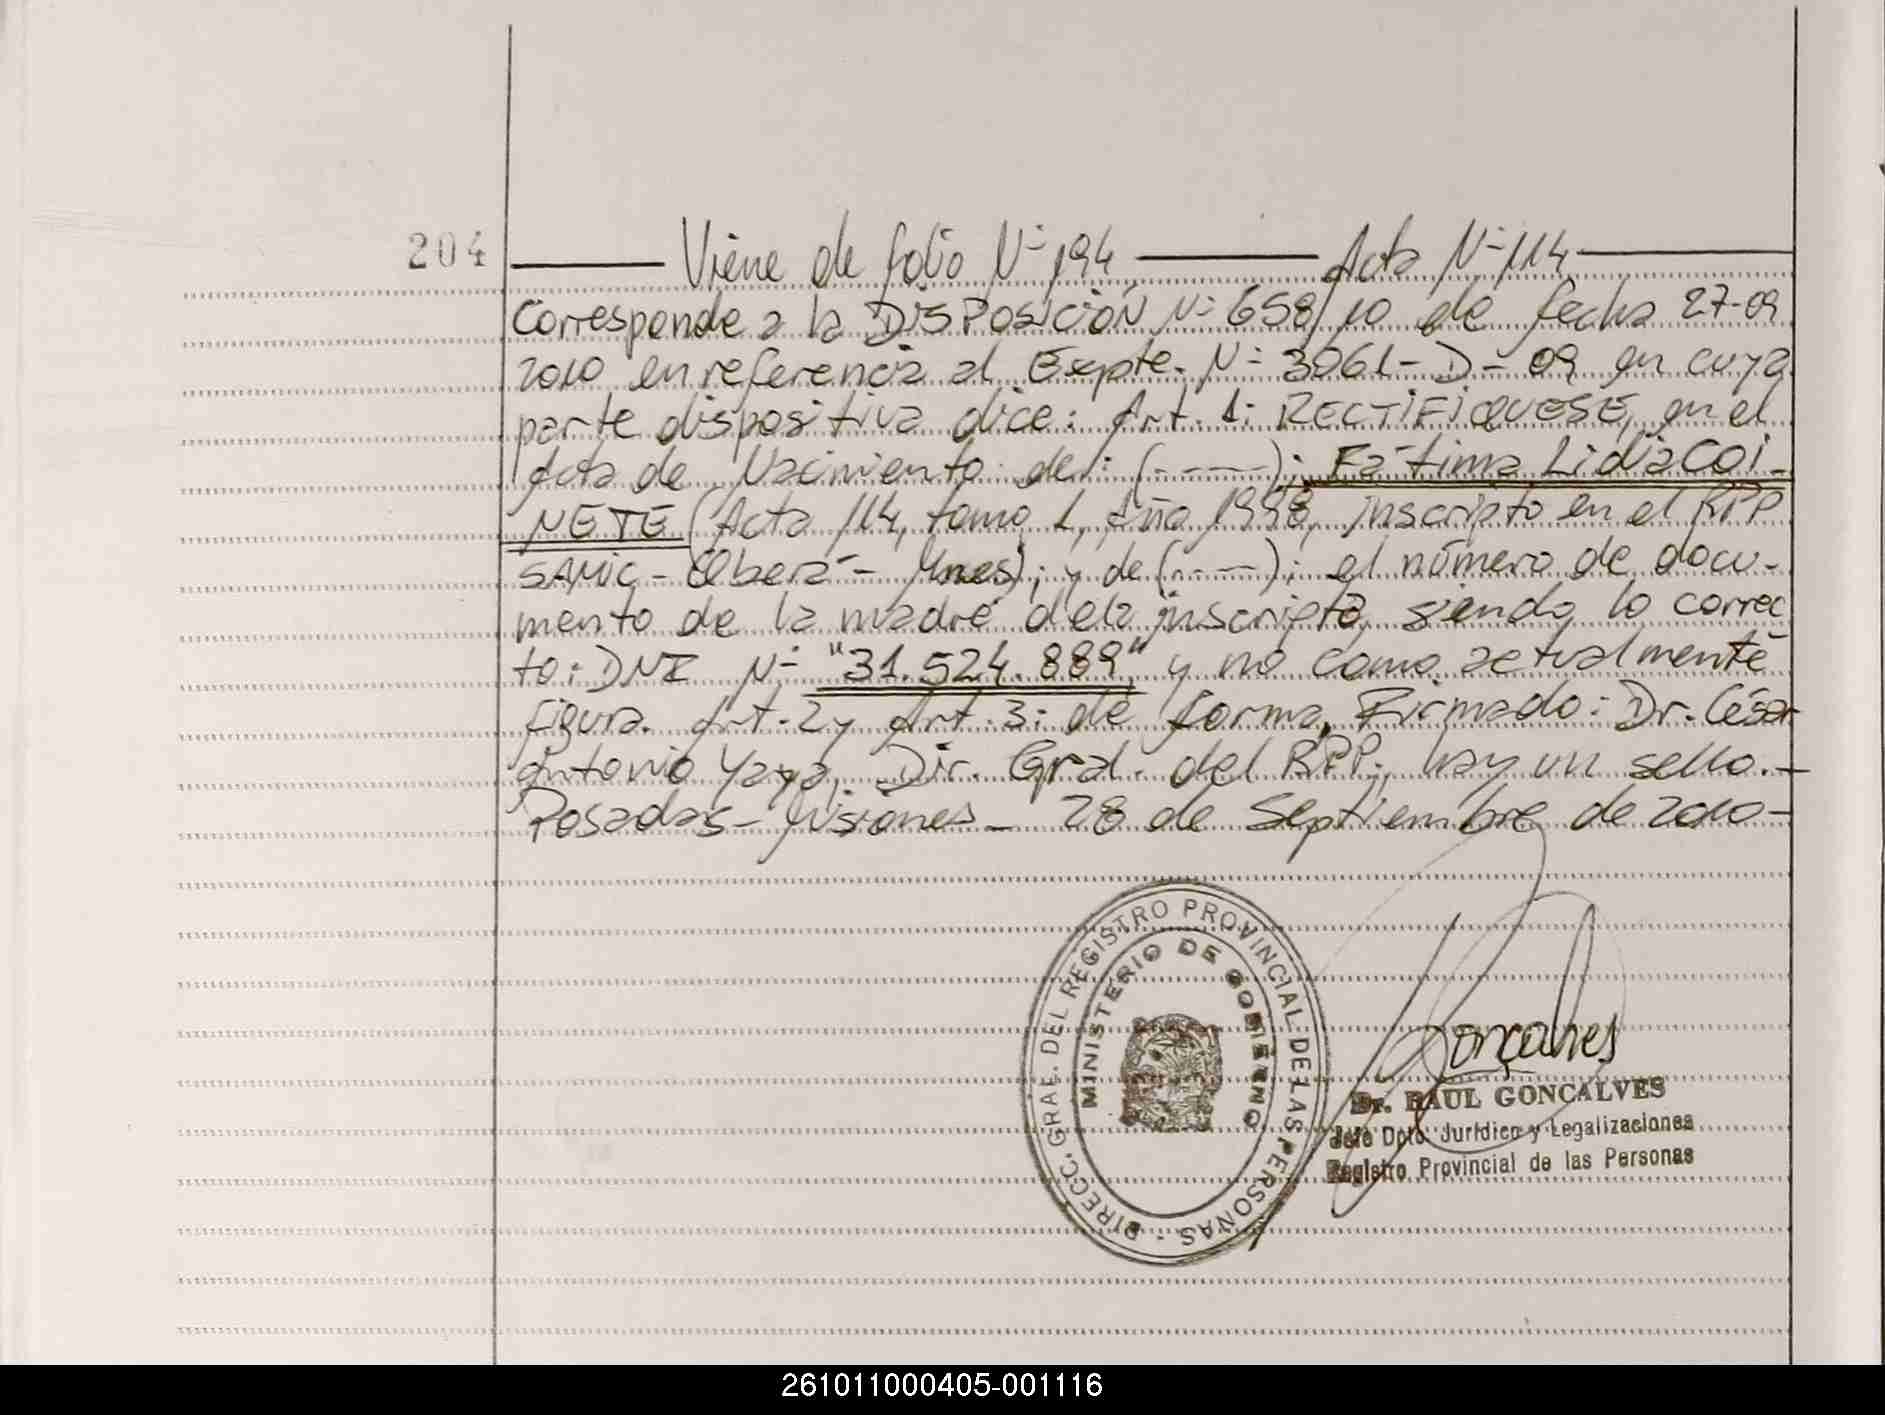 204
Viene de folio Nº 194 Acta Nº 114
Corresponde a la DISPOSICIÓN Nº 658/10 de fecha 27-09
2010 en referencia al Expte. Nº 3061-D-09 en cuya
parte dispositiva dice: Art. 1: RECTIFIQUESE, en el
Acta de Nacimiento de: (-----): Fátima Lidia COI-
NETE (Acta 114, tomo 1, Año 1998, inscripto en el RPP
SAMIC - Oberá - Mnes); y de (----): el número de docu-
mento de la madre de la inscripta, siendo lo correc
to: DNI Nº "31.524.889" y no como actualmente
figura. Art. 2 y Art. 3: de forma. Firmado: Dr. César
Antonio Yaya, Dir. Gral. del RPP; hay un sello.-
Posadas - Misiones - 28 de Septiembre de 2010-
DIRECC. GRAL. DEL REGISTRO PROVINCIAL DE LAS PERSONAS -
MINISTERIO DE GOBIERNO
Gonçalves
Dr. RAUL GONCALVES
Jefe Dpto. Jurídico y Legalizaciones
Registro Provincial de las Personas
261011000405-001116